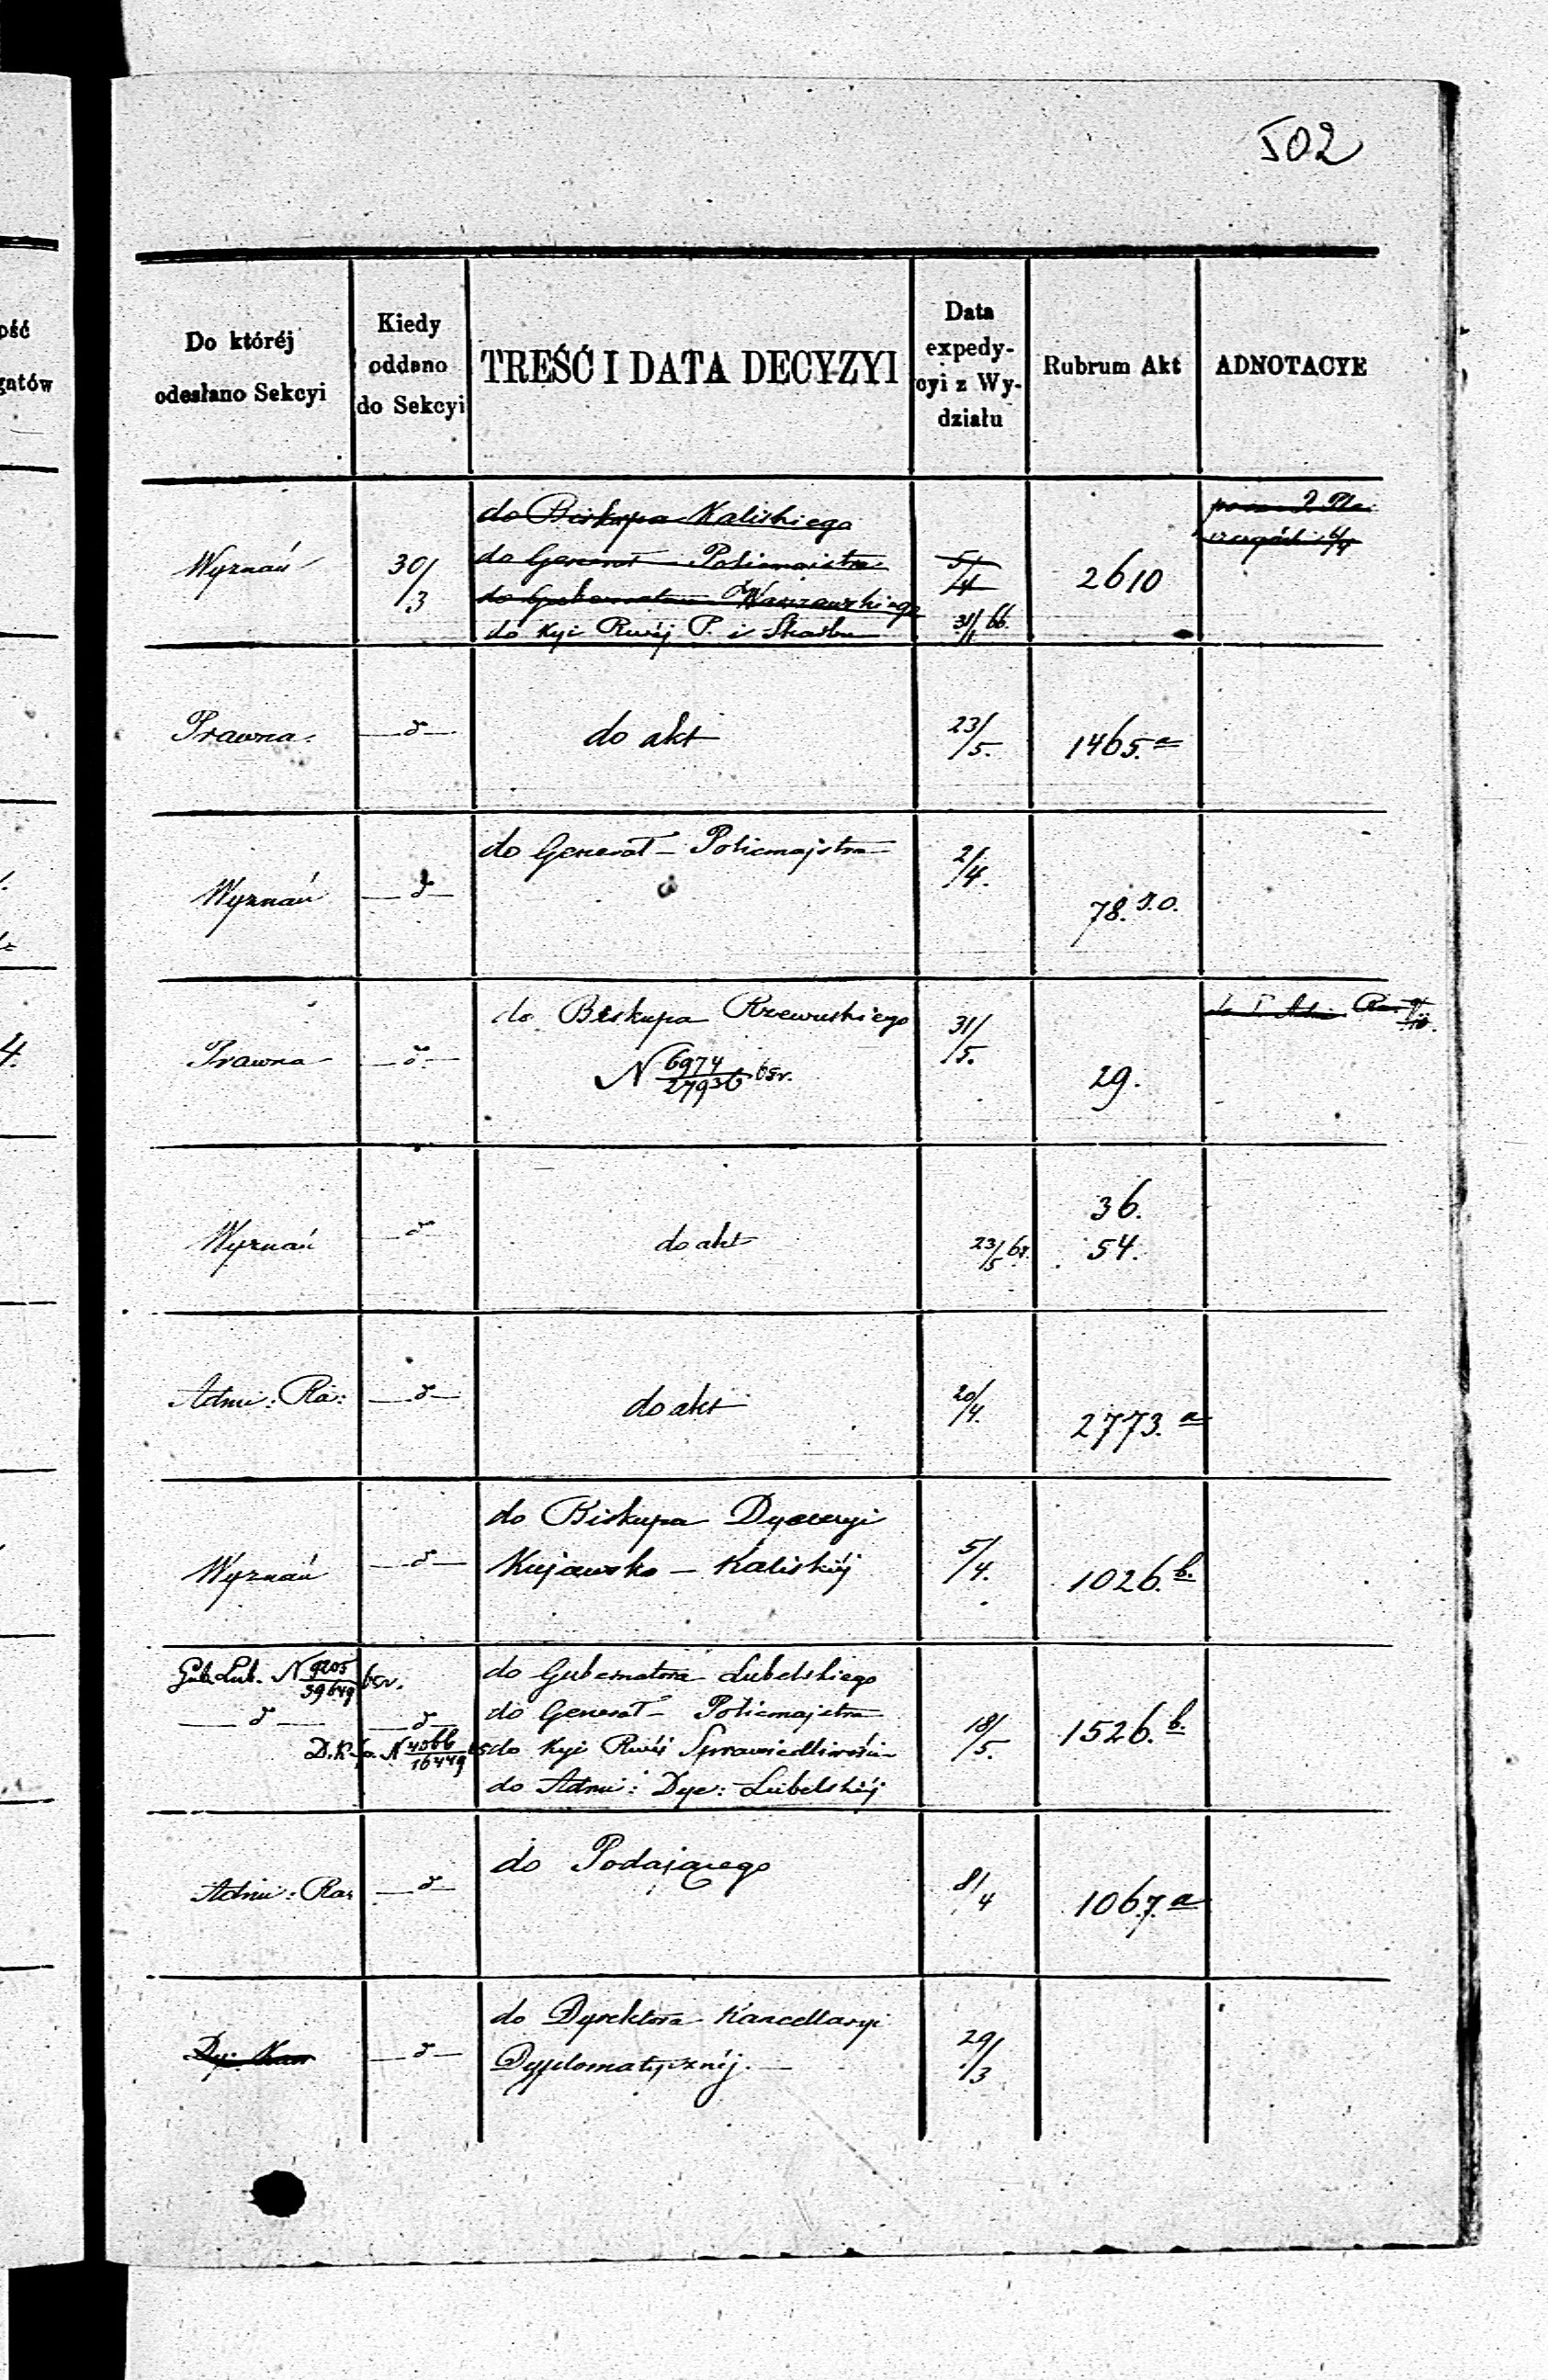 502
ość
gatów
Do któréj
odesłano Sekcyi
Kiedy
oddano
do Sekcyi
TREŚĆ I DATA DECYZYI
Data
expedy-
cyi z Wy-
działu
Rubrum Akt
ADNOTACYE
do Biskupa Kaliskiego
do Generał Policmajstra
do Gubernatora Warszawskiego
do Kyi Rwéj P. i Skarbu
Wyznań
30/3
5/4
31/1 66.
2610
Prawna
—d—
do akt
23/5.
1465.a
Wyznań
—d—
do Generał – Policmajstra
2/4.
78.
Prawna
—d—
do Biskupa Rzewuskiego
N 6974/27936 65r.
31/5.
29.
Wyznań
—d—
do akt
23/5
36.
54.
Admi: Ra:
—d—
do akt
20/4.
2773.a
Wyznań
—d—
do Biskupa Dyecezyi
Kujawsko – Kaliskiéj
5/4.
1026.b.
Gub. Lub. N 9205/39649 65r.
—d—
—d—
D.K.Sp. N 4066/16449
do Gubernatora Lubelskiego
do Generał – Policmajstra
do Kyi Rwéj Sprawiedliwości
do Admi: Dye: Lubelskiéj
18/5.
1526.b.
Admi: Ra:
—d—
do Podającego
8/4
1067.a
Dy: Kan
—d—
do Dyrektora Kancellaryi
Dyplomatycznéj. —
29/3
4.